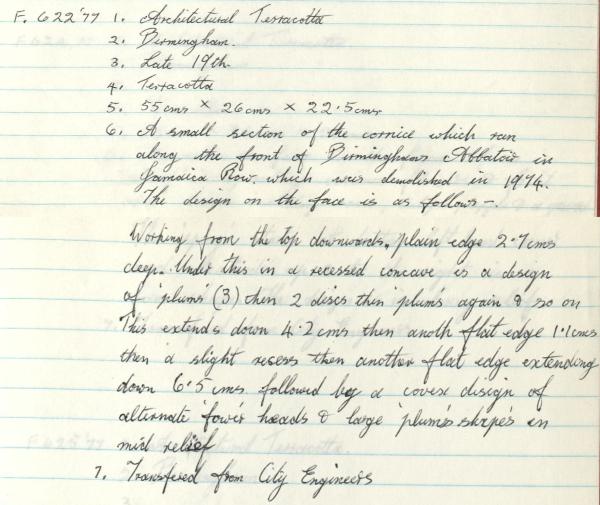 F. 622'77 1. Architectural Terracotta
2. Birmingham.
3. Late 19th.
4. Terracotta
5. 55cms × 26cms × 22.5cms
6. A small section of the cornice which ran
along the front of Birminghams Abbatoir in
Jamaica Row. which was demolished in 1974.
The design on the face is as follows -.
Working from the top downwards, plain edge 2.7cms
deep. Under this in a recessed concave is a design
of 'plums' (3) then 2 discs then 'plums again & so on
This extends down 4.2cms then anoth flat edge 1.1cms
then a slight recess then another flat edge extending
down 6.5 cms followed by a covex disign of
alternate 'fower heads & large 'plum's shapes in
mid relief
7. Transfered from City Engineers